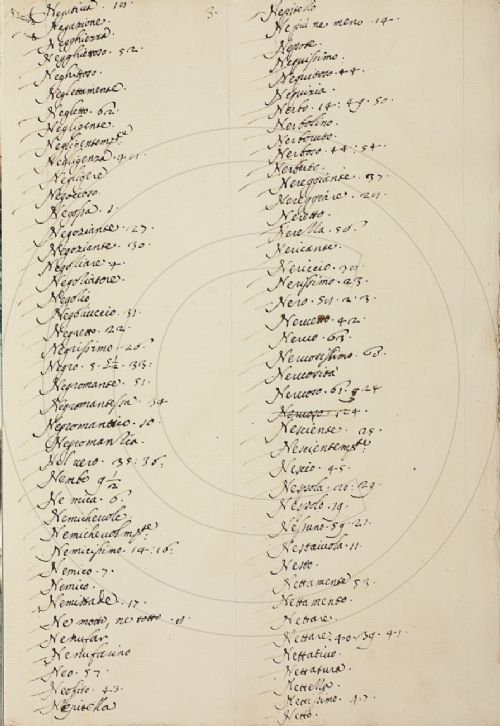 Negativa. 10.
Negazione.
Negghienza.
Negghiettoso. 52.
Neghittoso.
Neglettamente.
Negletto. 62.
Negligente.
Negligentemte.
Negligenza
Negligere
Negocioso.
Negossa. 1.
Negoziante. 27.
Negoziante. 30.
Negoziare. 4.
Negoziatore.
Negozio
Negoziuccio. 31.
Negretto. 22.
Negrissimo. 26.
Negro. 5. 5½. 33.
Negromante. 51.
Negromantessa. 54
Negromantico. 10.
Negromanzia.
Nel vero. 35: 36.
Nembo 9½
Ne mica. 6.
Nemichevole.
Nemichevolmte.
Nemicissimo. 14: 16.
Nemico. 7.
Nemico.
Nemistade. 17.
Ne motto, ne totto.
Nenufar.
Nenufarino
Neo. 57.
Neofito. 43.
Nepitella
3.
Nepitello
Ne più ne meno. 14.
Nepote.
Nequissimo.
Nequitoso. 44.
Nequizia.
Nerbo. 14: 49. 50.
Nerbolino.
Nerboruto.
Nerboso. 44: 54.
Nerbuto.
Nereggiante. 37.
Nereggiare. 20.
Neretto.
Nerella. 56.
Nericante.
Nericcio. 30.
Nerissimo. 23.
Nero. 50. 2. 3.
Nervetto. 42.
Nervo. 63.
Nervosissimo. 6.
Nervosità
Nervoso. 61. 9. 24
Nervoso. 124.
Nesciente. 25.
Nescientemte.
Nescio. 45.
Nespola. 26: 29.
Nespolo. 19.
Nessuno. 59. 21.
Nestaiuola. 11.
Nesto.
Nettamente 53.
Nettamento.
Nettare.
Nettare. 40. 39. 41.
Nettativo.
Nettatura.
Nettezza.
Nettissimo. 47.
Netto.